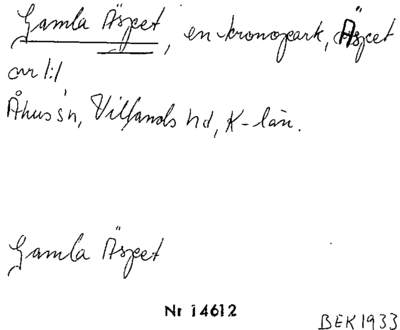 Gamla Äspet, en kronopark, Äspet
nr 1:1
Åhus s'n, Villands hd, K-län.
Gamla Äspet
Nr 14612
BEK 1933